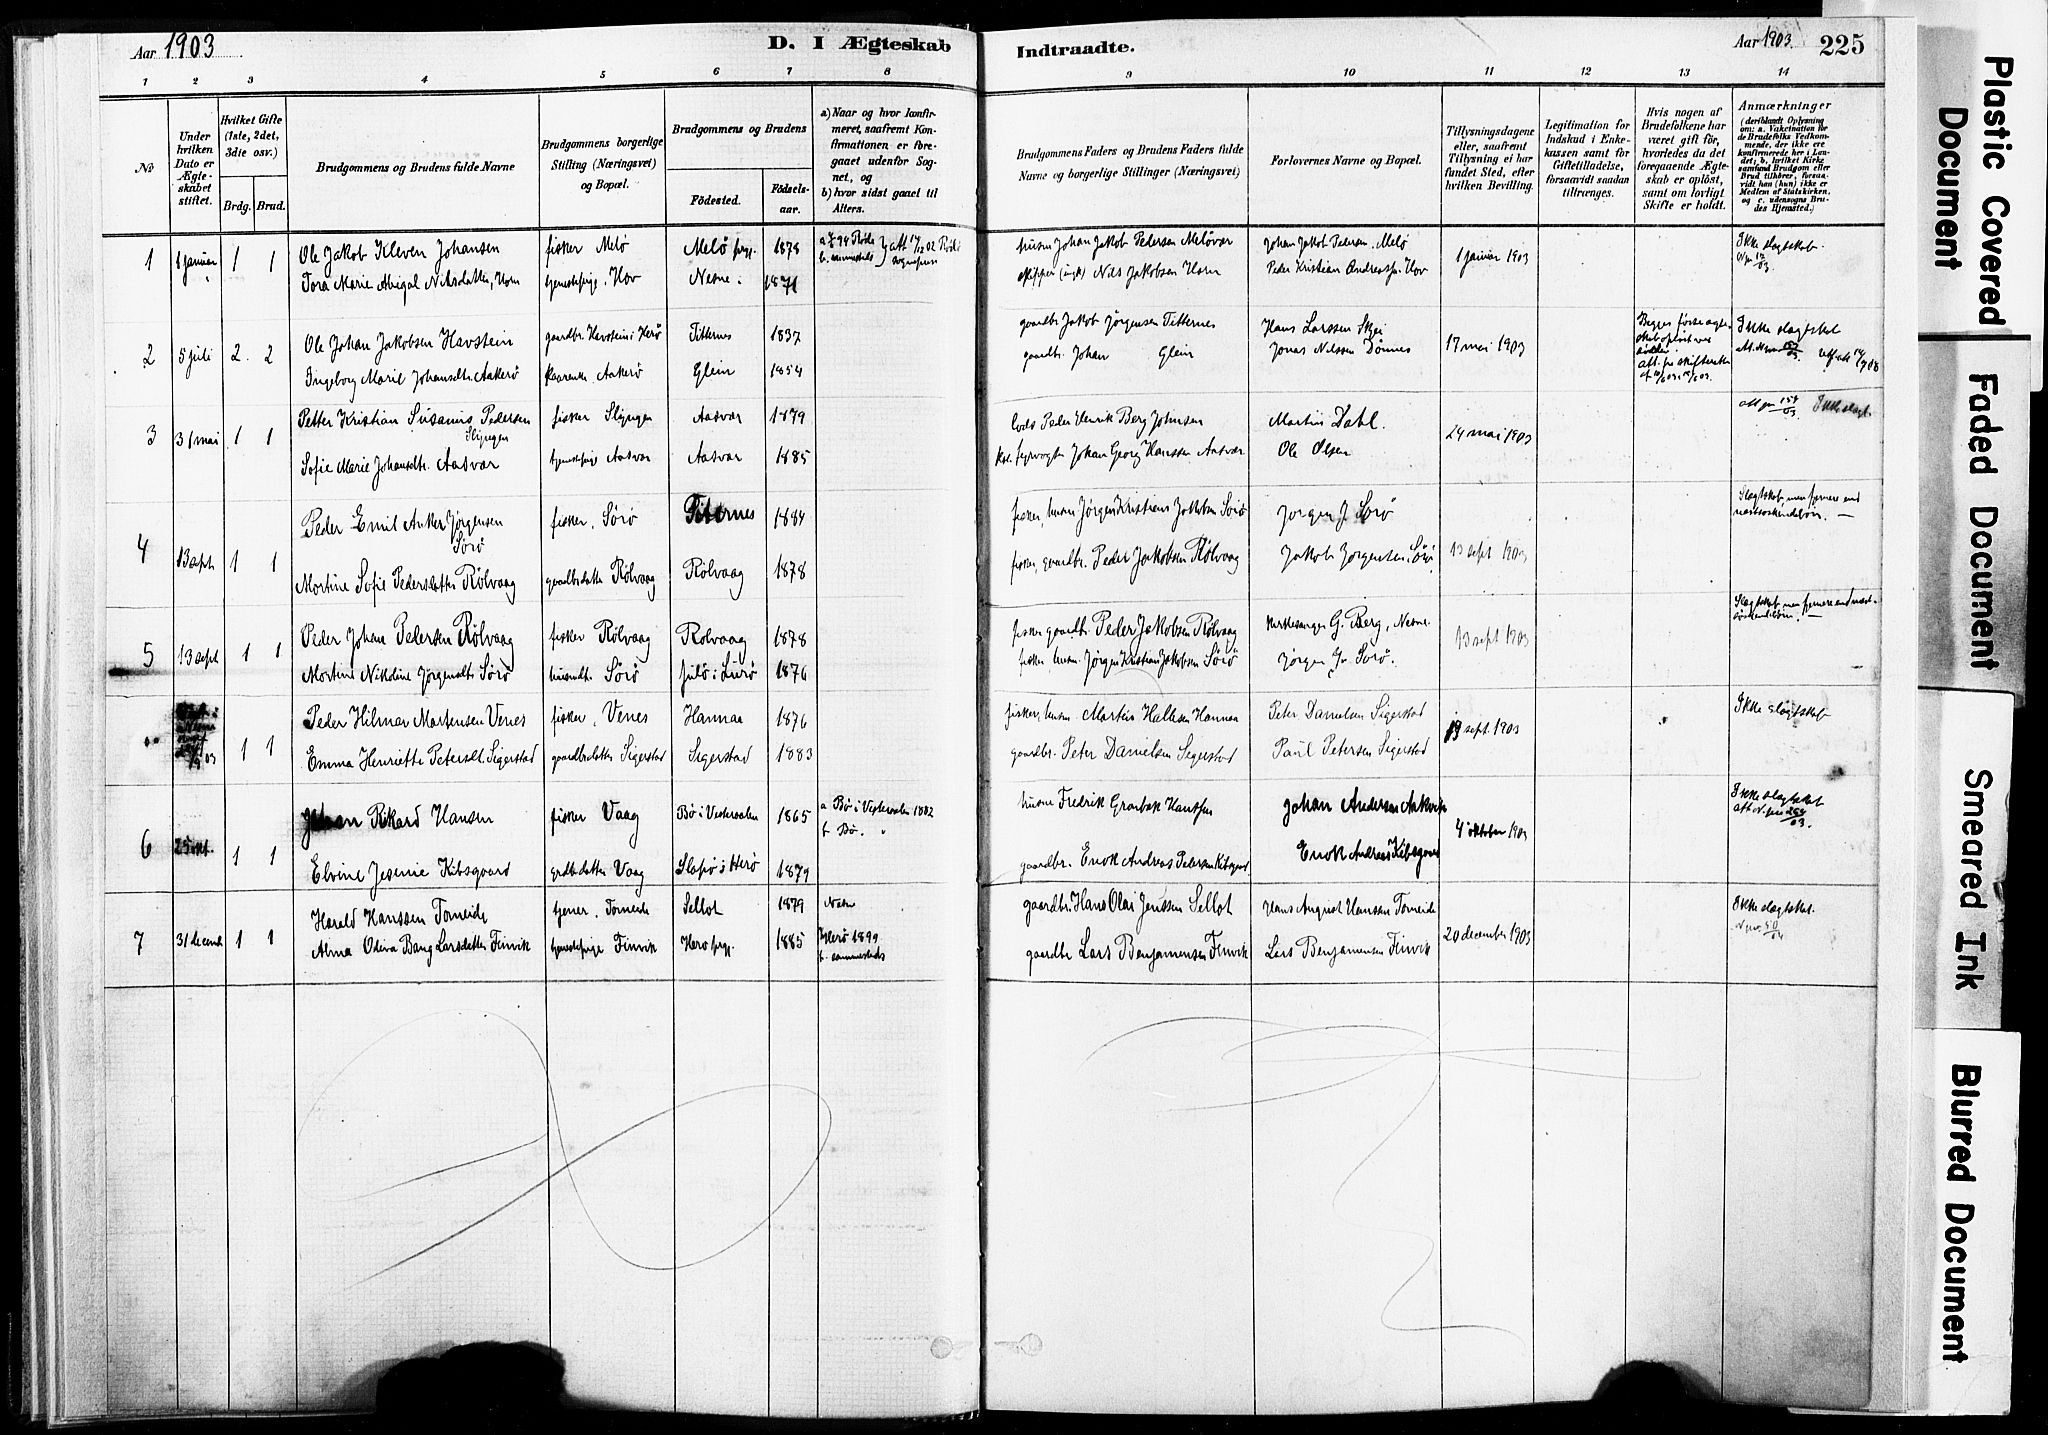 Aar 1903
D. I Ægteskab
Indtraadte.
Aar 1903.
225
1 2 3 4 5 6 7 8
9 10 11 12 13 14
No
Under hvilken Dato er Ægteskabet stiftet.
Hvilket Gifte (1ste, 2det, 3die osv.)
Brdg. Brud.
Brudgommens og Brudens fulde Navne
Brudgommens borgerlige Stilling (Næringsvei) og Bopæl.
Brudgommens og Brudens
Födested.
Födselsaar.
a) Naar og hvor konfirmeret, saafremt Konfirmationen er foregaaet udenfor Sognet, og
b) hvor sidst gaaet til Alters.
Brudgommens Faders og Brudens Faders fulde Navne og borgerlige Stillinger (Næringsvei)
Forlovernes Navne og Bopæl.
Tillysningsdagene eller, saafremt Tillysning ei har fundet Sted, efter hvilken Bevilling.
Legitimation for Indskud i Enkekassen samt for Giftetilladelse, forsaavidt saadan tiltrænges.
Hvis nogen af Brudefolkene har været gift för, hvorledes da det foregaaende Ægteskab er oplöst, samt om lovligt Skifte er holdt.
Anmærkninger
(deriblandt Oplysning om: a. Vakcination for de Brudefolks Vedkommende, der ikke ere konfirmerede her i Landet; b. hvilket Kirkesamfund Brudgom eller Brud tilhörer, forsaavidt han (hun) ikke er Medlem af Statskirken, og c. udensogns Brudes Hjemsted.)
1 1 januar 1 1 Ole Jakob Kleven Johansen fisker Melö Melö prgj. 1878 husm Johan Jakob Pedersen Melövær Johan Jakob Pedersen, Melö 1 januar 1903 Ikke slægtskab.
Tora Marie Abigal Nilsdatter, Horn tjenestepige, Hov Nesne. 1871 skipper Nils Jakobsen Horn Peder Kristian Andreassen, Hov
2 5 juli 2. 2 Ole Johan Jakobsen Havstein gaardbr. Havstein i Herö Titternes 1837 gaardbr Jakob Jörgensen Titternes Hans Larssen Skei 17 mai 1903 Ikke slægtskab
Ingeborg Marie Johansdtr. Aakerö Aakerö Glein 1854 gaardbr. Johan Glein Jonas Nilssen Dönnes
3 31 mai 1 1 Petter Kristian Susanius Pedersen fisker Slyngen Aasvær 1879 Lods Peder Henrik Berg Johnsen Martin Dahl. 24 mai 1903 Ikke slægt.
Slyngen
Sofie Marie Johansdtr. Aasvær tjenestepige Aasvær Aasvær 1885 fyrvogter Johan Georg Hanssen Aasvær Ole Olsen
4 13 sept 1 1 Peder Emil Anker Jörgensen fisker, Sörö Titternes 1884 fisker, husm Jörgen Kristians Jakobsen Sörö Jörgen J. Sörö 13 sept 1903 Slægtskab men fjernere end næssöskendebörn. —
Sörö
Martine Sofie Pedersdatter Rölvaag gaardbrsdatter Rölvaag Rölvaag 1878 fisker, gaardbr. Peder Jakobsen Rölvaag Jakob Jörgensen, Sörö
5 13 sept 1 1 Peder Johan Pedersen Rölvaag fisker Rölvaag Rölvaag 1878 fisker gaardbr. Peder Jakobsen Rölvaag Kirkesanger G. Berg, Nesne. 13 sept 1903 Slægtskab men fjernere end næstsöskendebörn. —
Martine Nikoline Jörgensdtr. Sörö husmdt. Sörö i Lurö 1876 fisker, husm. Jörgen Kristian Jakobsen Sörö Jörgen Jr. Sörö.
1 1 Peder Hilmar Mortensen Venes fisker, Venes Hannaa 1876 fisker, husm. Martin Hallesen Hannaa Peter Danielsen Sigerstad 13 sept. 1903 Ikke slægtskab
Emma Henriette Petersdt. Sigerstad gaardbrdatter Sigerstad Sigerstad 1883 gaardbr. Peter Danielsen Sigerstad Paul Petersen Sigerstad
6 25 okt. 1 1 Johan Rikard Hansen fisker Vaag Bö i Vesteraalen 1865 a Bö i Vesteraalen 1882 husm Fredrik Hanssen Johan Andersen 4 oktober 1903 Ikke slægtskab
b Bö. "
Elvine Jesine Kibsgaard grdbrdatter Vaag Slapö i Herö 1879 gaardbr. Enok Andreas Petersen Kibsgaard Enok Andreas Kibsgaard
7 31 decemb. 1 1 Harald Hanssen Tomeide tjener. Tomeide Sellot 1879 Nesne gaardbr. Hans Olai Jenssen Sellot Hans August Hanssen Tomeide 20 december 1903 Ikke slægtskab.
Alma Odina Bang Larsdatter Finvik tjenestepige Finvik Herö prgj. 1885 Herö 1899 gaardbr Lars Benjaminsen Finvik Lars Benjaminsen Finvik
b. sammesteds
Plastic Covered Document
Faded Document
Smeared Ink
Blurred Document